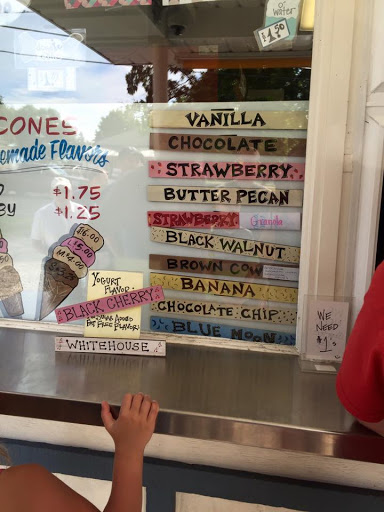 or WATER
$1.50
CONES
omemade Flavors
$1.75
$1.25
$16.00
15.00
$14.00
VANILLA
CHOCOLATE
STRAWBERRY
BUTTER PECAN
STRAWBERRY
BLACK WALNUT
BROWN COW
BANANA
CHOCOLATE CHIP
BLUE MOON
YOGURT
FLAVOR:
BLACK CHERRY
FAT FREE FLAVOR
WHITEHOUSE
WE
NEED
$1's